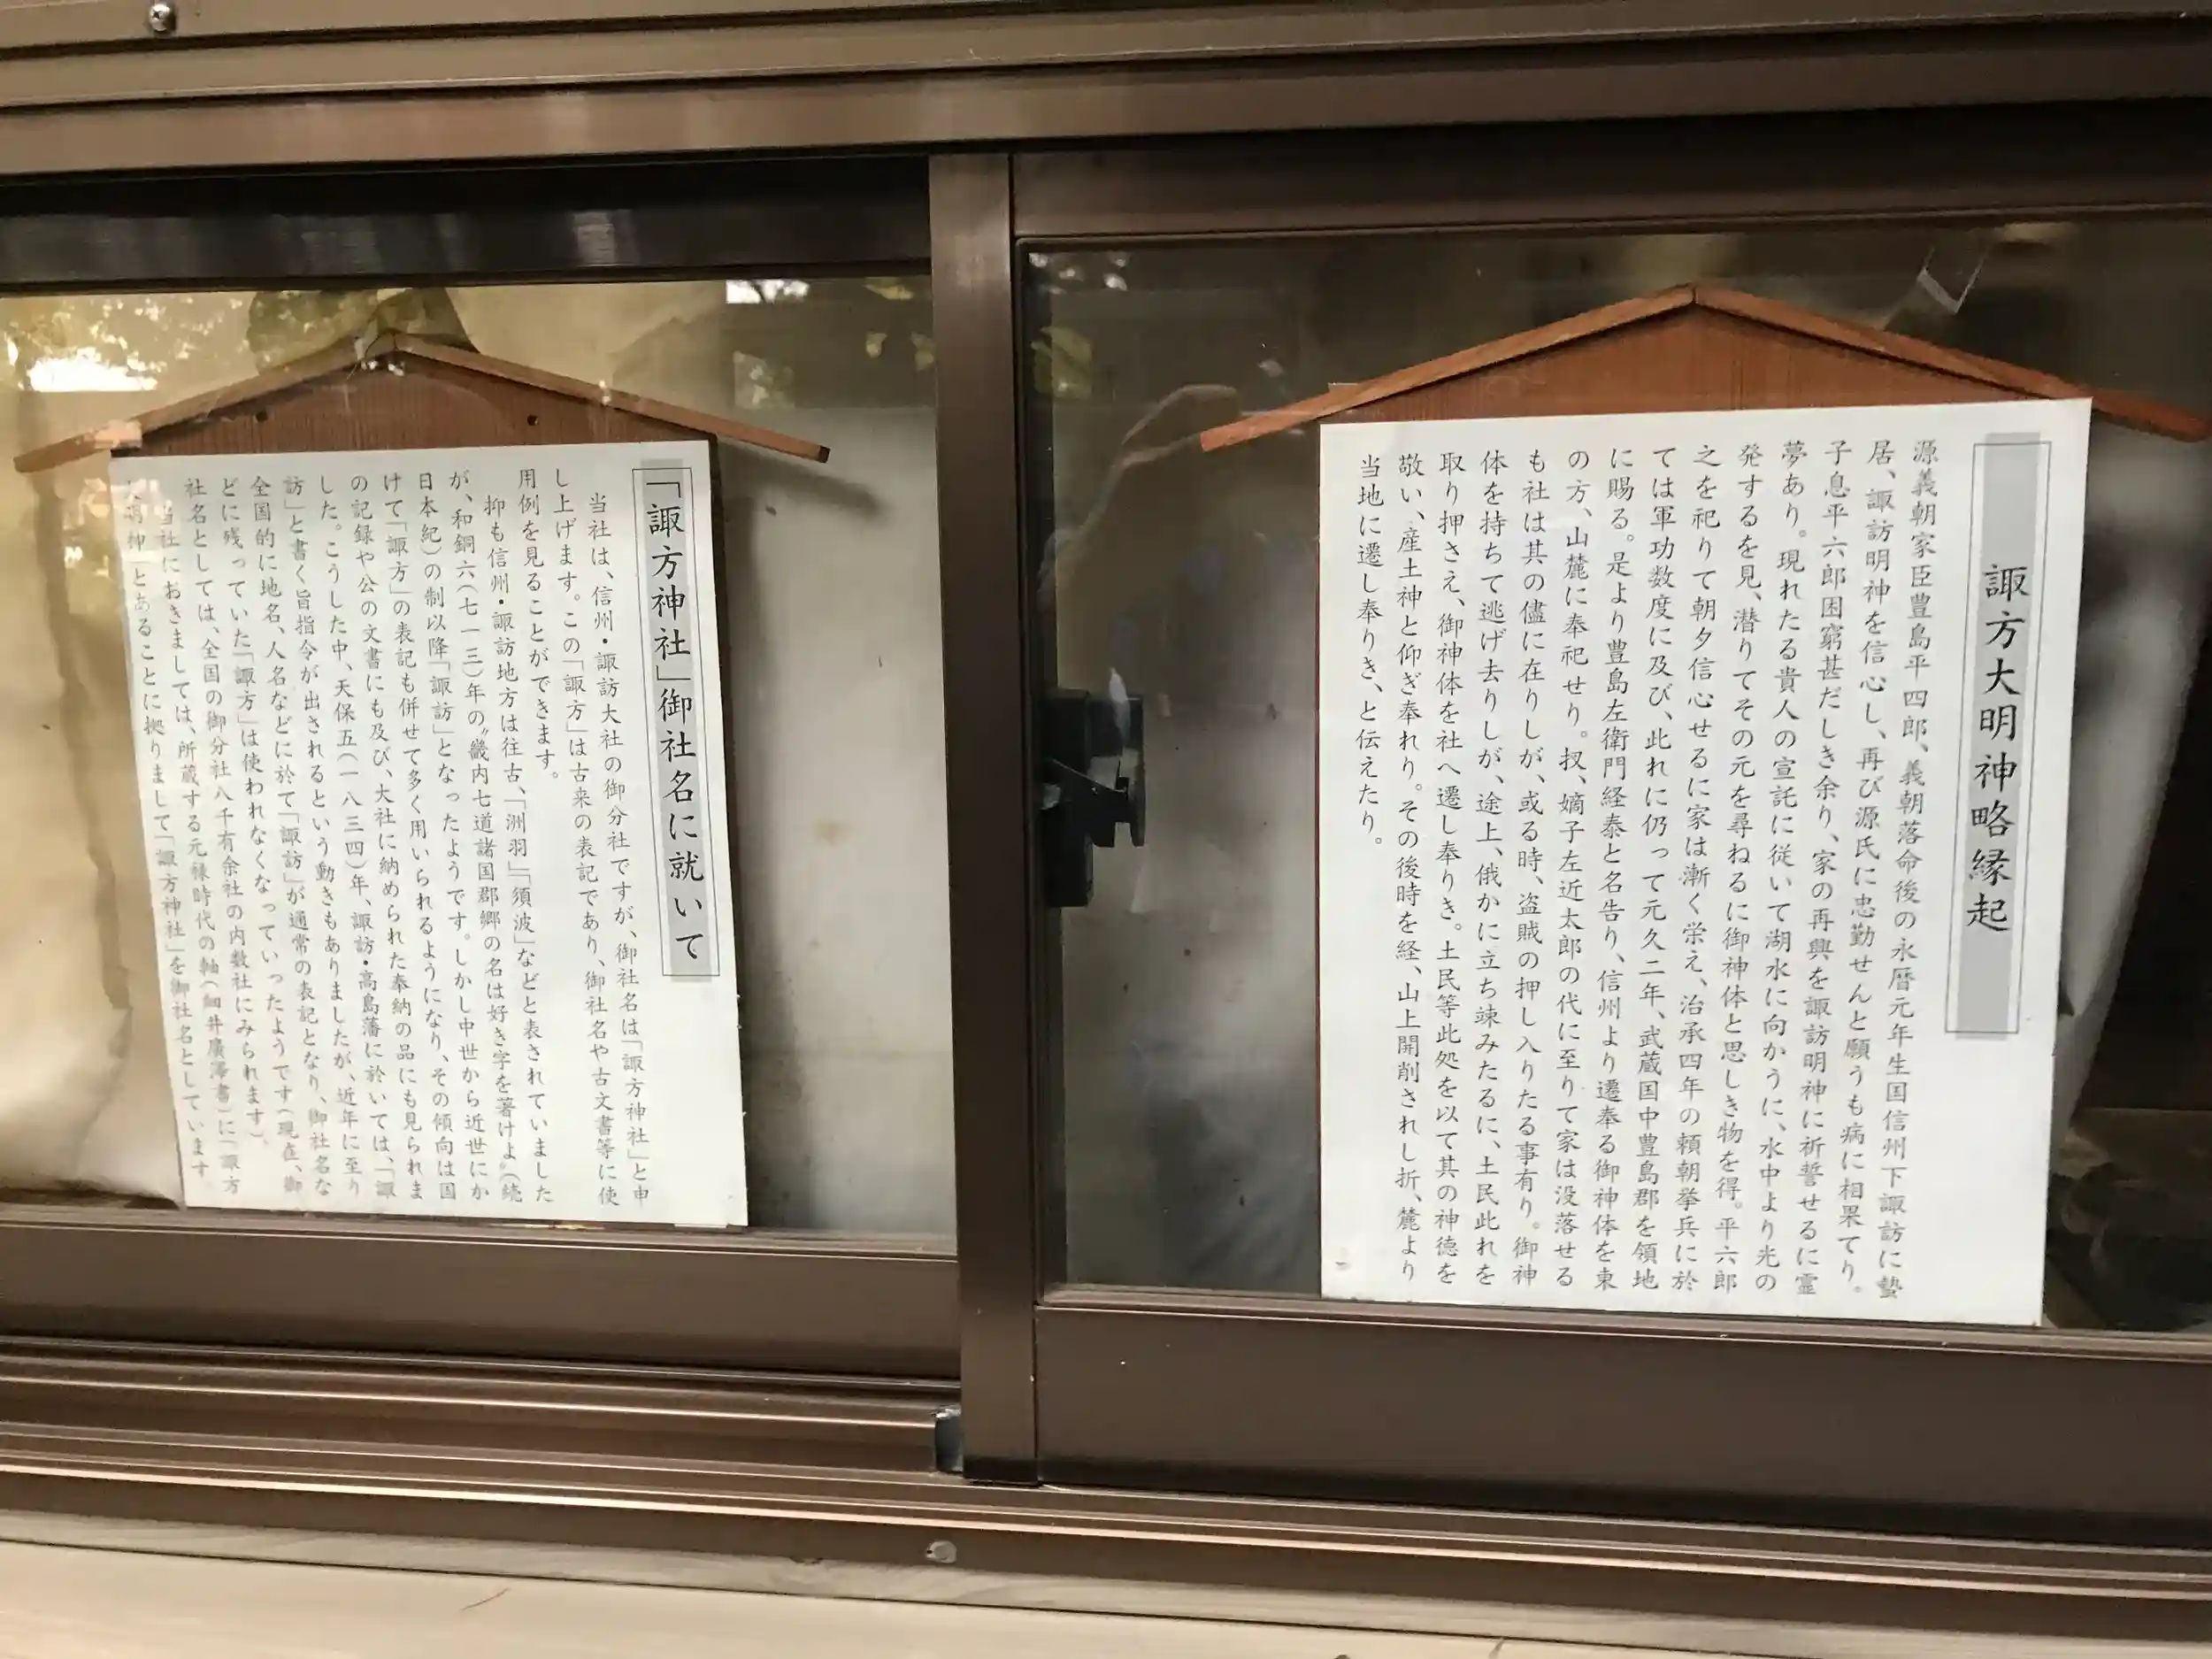 諏方大明神略縁起
源義朝家臣豊島平四郎、義朝落命後の永暦元年生国信州下諏訪に蟄
居、諏訪明神を信心し、再び源氏に忠勤せんと願うも病に相果てり。
子息平六郎困窮甚だしき余り、家の再興を諏訪明神に祈誓せるに霊
夢あり。現れたる貴人の宣託に従いて湖水に向かうに、水中より光の
発するを見、潜りてその元を尋ねるに御神体と思しき物を得。平六郎
之を祀りて朝夕信心せるに家は漸く栄え、治承四年の頼朝挙兵に於
ては軍功数度に及び、此れに仍って元久二年、武蔵国中豊島郡を領地
に賜る。是より豊島左衛門経泰と名告り、信州より遷奉る御神体を東
の方、山麓に奉祀せり。扠、嫡子左近太郎の代に至りて家は没落せる
も社は其の儘に在りしが、或る時、盗賊の押し入りたる事有り。御神
体を持ちて逃げ去りしが、途上、俄かに立ち竦みたるに、土民此れを
取り押さえ、御神体を社へ遷し奉りき。土民等此処を以て其の神徳を
敬い、産土神と仰ぎ奉れり。その後時を経、山上開削されし折、麓より
当地に遷し奉りき、と伝えたり。
「諏方神社」御社名に就いて
当社は、信州・諏訪大社の御分社ですが、御社名は「諏方神社」と申
し上げます。この「諏方」は古来の表記であり、御社名や古文書等に使
用例を見ることができます。
抑も信州・諏訪地方は往古、「洲羽」「須波」などと表されていました
が、和銅六(七一三)年の〝畿内七道諸国郡郷の名は好き字を著けよ〟(続
日本紀)の制以降「諏訪」となったようです。しかし中世から近世にか
けて「諏方」の表記も併せて多く用いられるようになり、その傾向は国
の記録や公の文書にも及び、大社に納められた奉納の品にも見られま
した。こうした中、天保五(一八三四)年、諏訪・高島藩に於いては、「諏
訪」と書く旨指令が出されるという動きもありましたが、近年に至り
全国的に地名、人名などに於て「諏訪」が通常の表記となり、御社名な
どに残っていた「諏方」は使われなくなっていったようです(現在、御
社名としては、全国の御分社八千有余社の内数社にみられます)。
当社におきましては、所蔵する元禄時代の軸(細井廣澤書)に「諏方
大明神」とあることに拠りまして「諏方神社」を御社名としています。